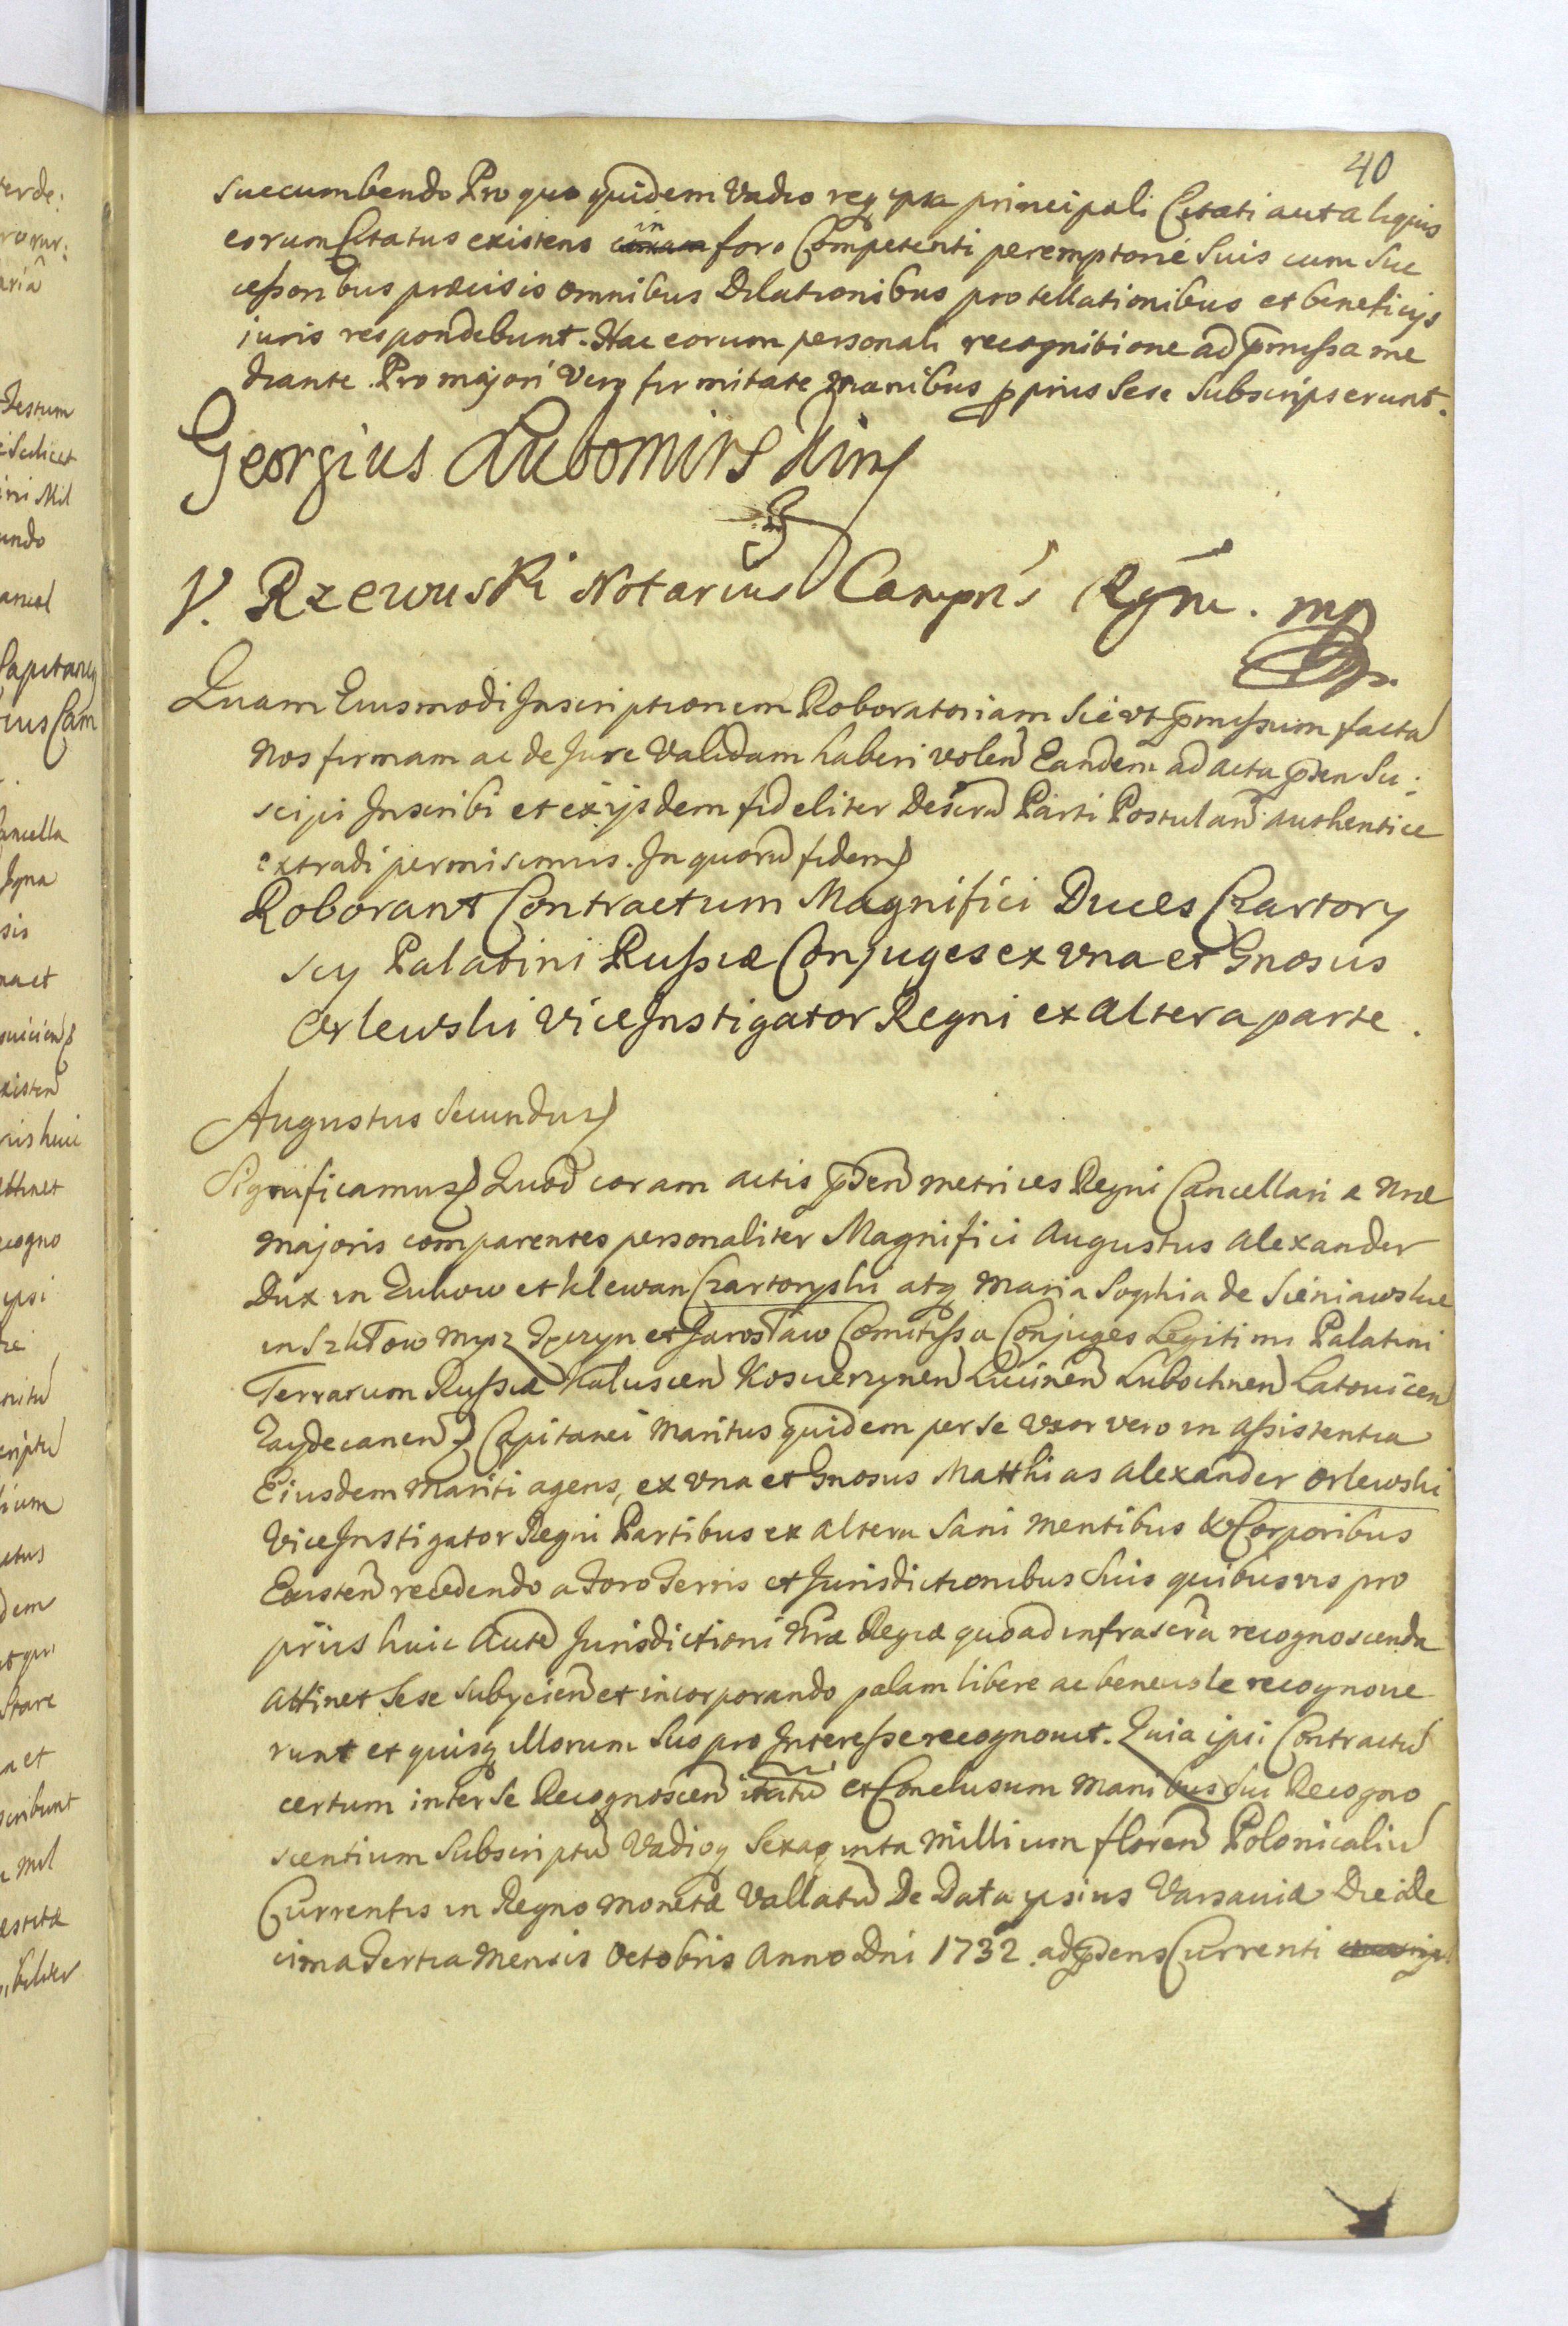 40
Succumbendo Pro quo quidem Vadio reqz ipsa principali Citati aut aliquis
eorum Citatus existens in foro Competenti peremptorié Suis cum Suc
cessoribus praecisis omnibus Dilationibus protellationibus et beneficijs
juris respondebunt. Hac eorum personali recognitione ad pmissa me
diante. Pro majori Vero firmitate Manibus pprijs Sese Subscripserunt.
Georgius Lubomirski mp
V. Rzewuski Notarius Campris Regni. mp
Quam Eiusmodi Inscriptionem Roboratoriam Sic ut pmissum facta
Nos firmam ac de Jure Validam haberi volen Eandem ad acta pden Su:
scipi Inscribi et ex ijsdem fideliter Descrā Parti Postulan authentice
extradi permisimus. In quorū fidem
Roborant Contractum Magnifici Duces Czartory
scy Palatini Russiae Conjuges ex una et Gnosus
Orlewski ViceInstigator Regni ex altera parte.
Augustus Secundus
Significamus Quod coram actis pden metrices Regni Cancellariae Nrae
Majoris comparentes personaliter Magnifici Augustus Alexander
Dux in Zukow et Klewan Czartoryski atqz Maria Sophia de Sieniawskie
in Szkłow Mysz et Jarosław Comitissa Conjuges Legitimi Palatini
Terrarum Russiae Kaluscen Koscierzynen Lucinen Lubochnen Latovicen
Capitanei Maritus quidem per se Uxor vero in assistentia
Eiusdem Mariti agens, ex una et Gnosus Matthias Alexander Orlewski
ViceInstigator Regni Partibus ex altera Sani Mentibus & Corporibus
Existen recedendo a Foro Terris et Jurisdictionibus Suis quibusvis pro
prijs huic Autē Jurisdictioni Nrae Regiae quoad infrascrā recognoscenda
attinet Sese subycien et incorporando palam libere ac benevole recognove
runt et quisqz illorum Suo pro Interesse recognovit. Quia ipsi Contractū
certum inter Se Recognoscen itatū et Conclusum Manibus Sui Recogno
scentium Subscriptū Vadioqz Sexaginta Millium floren Polonicaliū
Currentis in Regno Monetae Vallatū De Data ipsius Varsaviae Die De
cima Tertia Mensis Octobris Anno Dni 1732. ad pdens Currenti